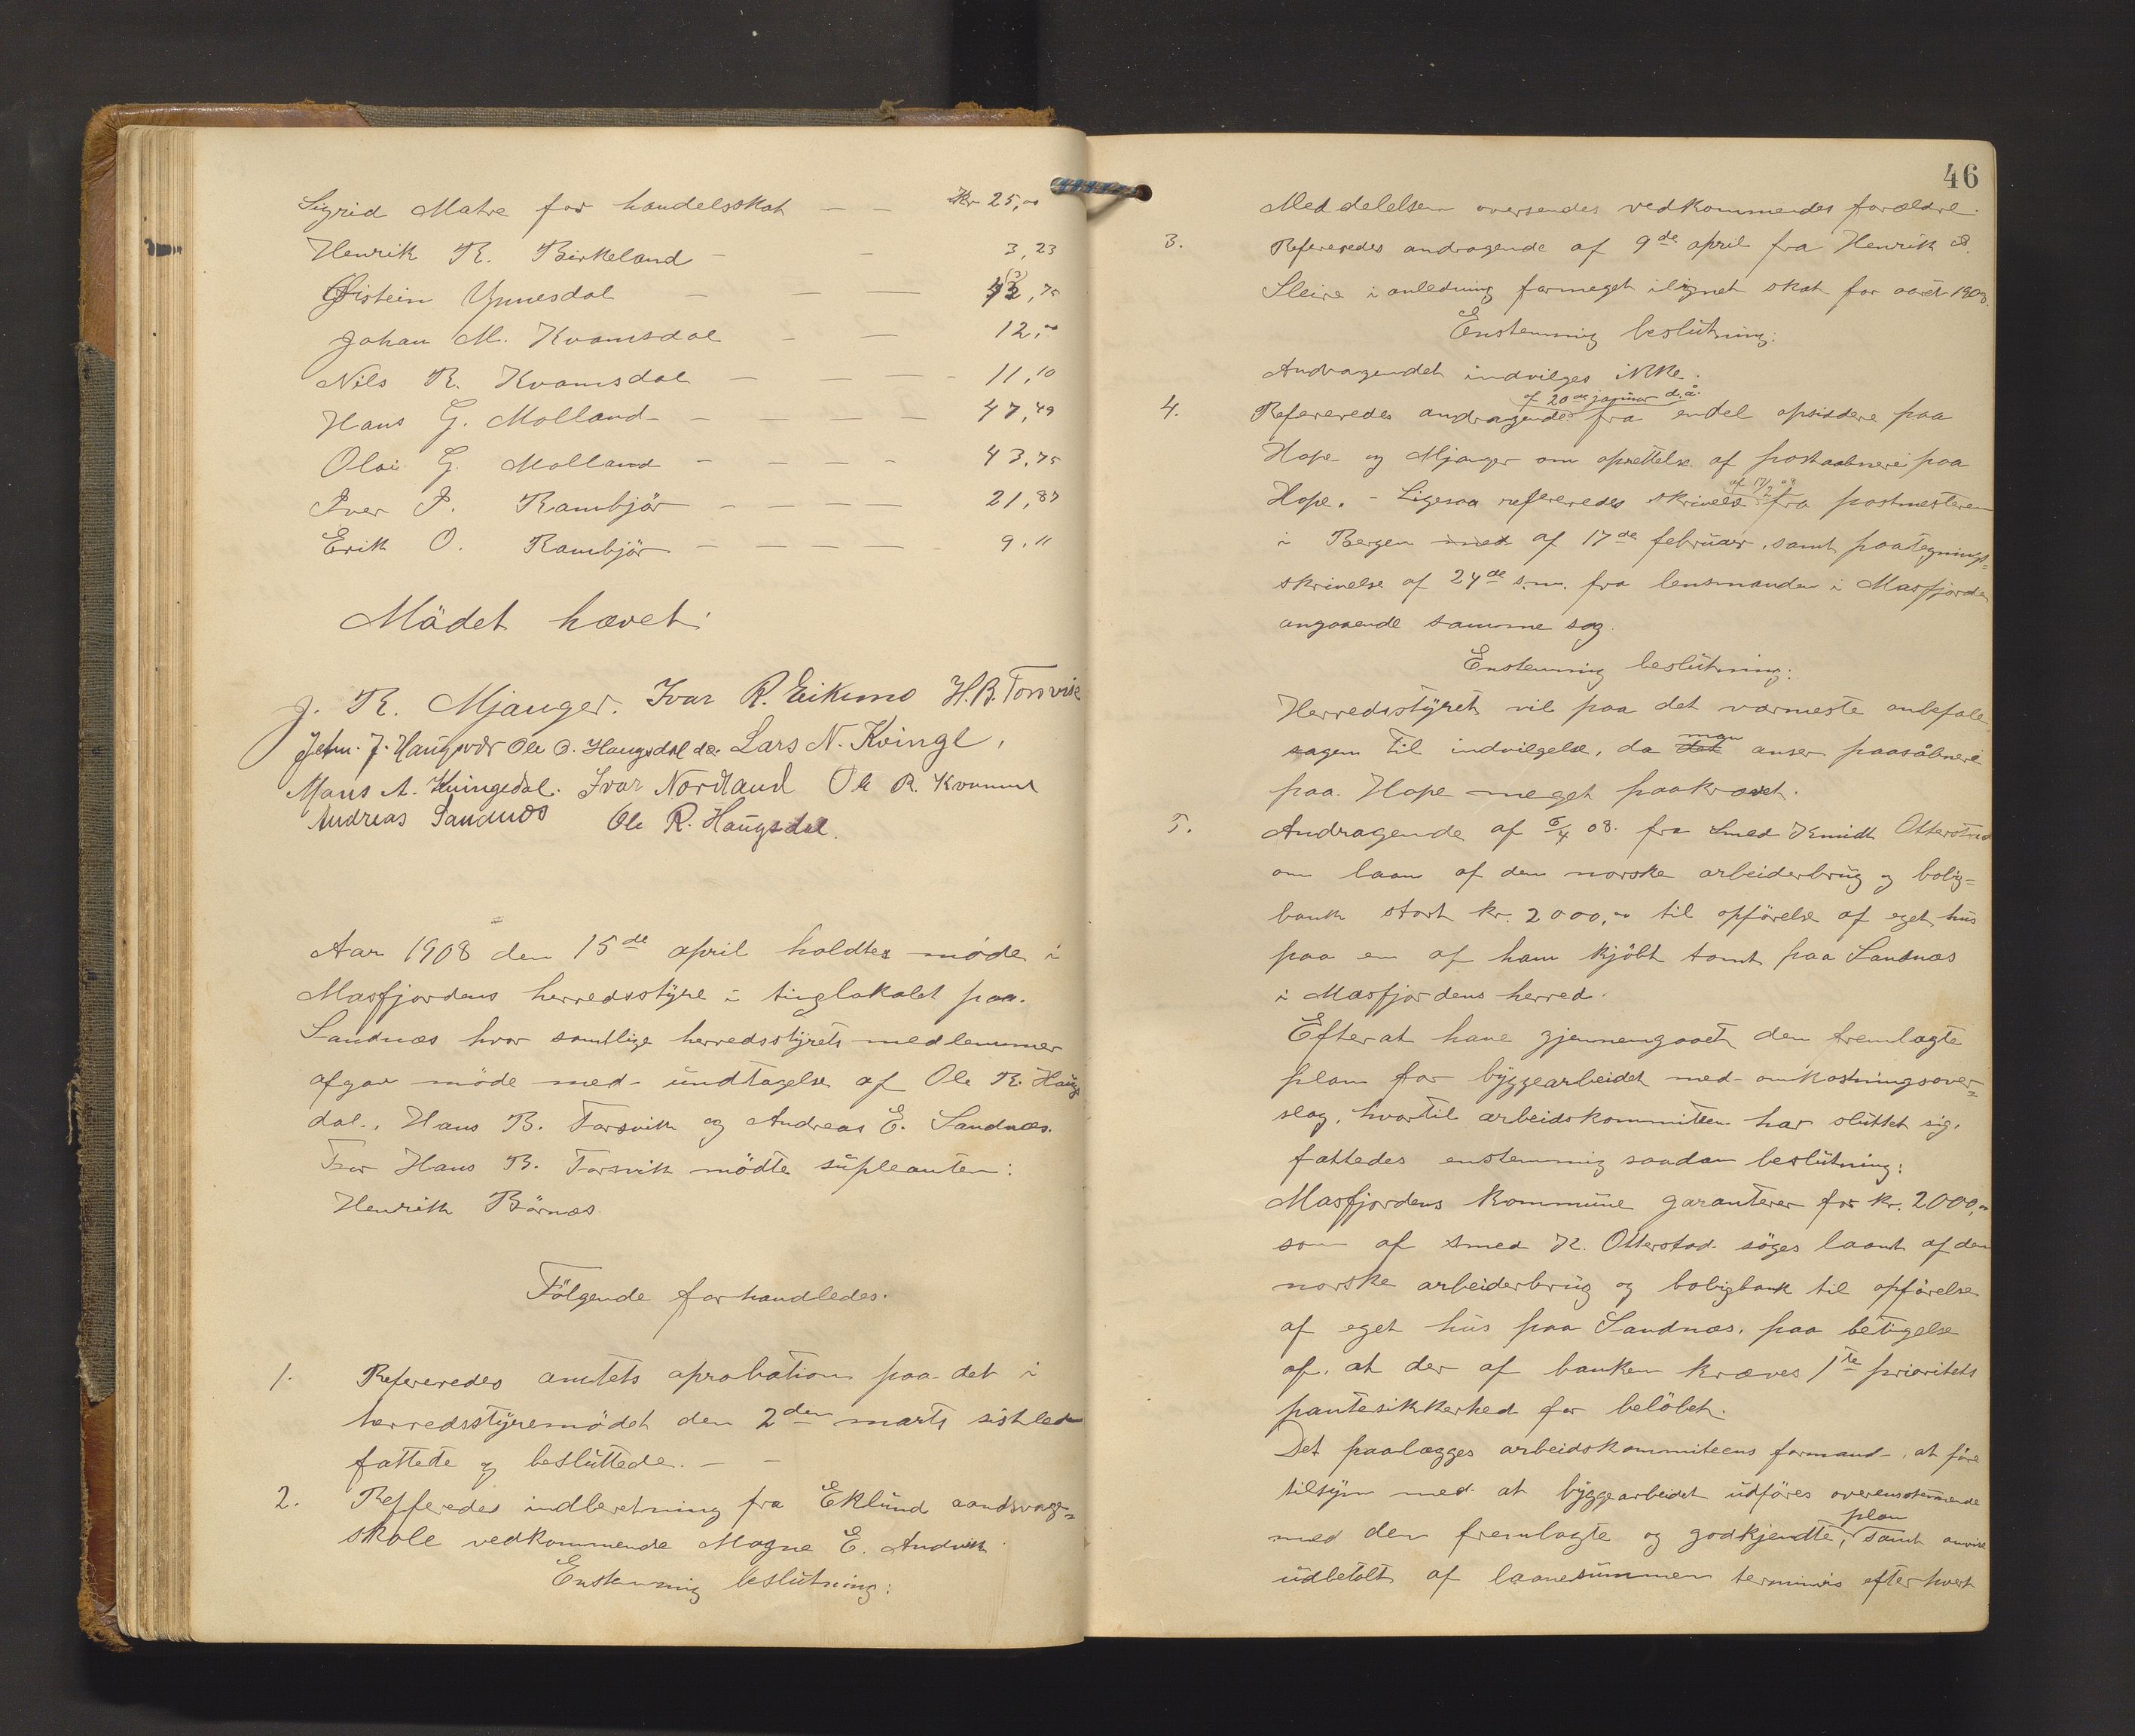 Sigrid Matre for handelsskat — — Kr 25,00
Henrik R. Birkeland — — 3,23
Øistein Ynnesdal — — — ,75
Johan M. Kvamsdal — — 12,00
Nils R. Kvamsdal — — — 11,10
Hans G. Molland — — — — 47,49
Olai G. Molland — — — — 43,75
Iver I. Rambjör — — — — 21,87
Erik O. Rambjör — — — — — 9.11
Mödet hævet.
J. R. Mjanger. Ivar R. Eikemo H.B. Torsvik
J. Haugsvær Ole O. Haugsdal Lars N. Kvinge,
Mons A. Kvingedal. Ivar Nordland Ole R. Kvamme
Andreas Sandnæs Ole R. Haugsdal.
Aar 1908 den 15de april holdtes møde i
Masfjordens herredsstyre i tinglokalet paa.
Sandnæs hvor samtlige herredsstyrets medlemmer
afgav møde med undtagelse af Ole R. Haugs
dal., Hans B. Torsvik og Andreas E. Sandnæs.
For Hans B. Torsvik mödte supleanten:
Henrik Börnæs
Fölgende forhandledes.
1. Refereredes amtets aprobation paa det i
herredsstyremödet den 2den marts sistleden
fattete og besluttede. — —
2. Refferedes indberetning fra Eklund aandsvage=
skole vedkommende Magne E. Andvik
Enstemmig beslutning:
46
Meddelelsen oversendes vedkommendes forældre.
3. Refereredes andragende af 9de april fra Henrik
Sleire i anledning formeget ilignet skat for aaret 1908.
Enstemmig beslutning:
Andragendet indvilges ikke.
af 20de januar d.å.
4. Refereredes andragende fra endel opsiddere paa
Hope og Mjanger om oprettelse af postaabneri paa
af 17/2 08
Hope. - Ligesaa refereredes skrivelse fra postmesteren
i Bergen med af 17de februar, samt paategnings=
skrivelse af 24de s.m. fra lensmanden i Masfjorden
angaaende samme sag.
Enstemmig beslutning:
Herredsstyret vil paa det varmeste anbefale
man
sagen til indvilgelse, da det anser paasåbneri
paa Hope meget paakrævet.
5. Andragende af 6/4 08. fra smed Otterstad
om laan af den norske arbeiderbrug og bolig=
bank stort kr. 2000,00 til opförelse af eget hus
paa en af ham kjöbt tomt paa Sandnæs
i Masfjordens herred.
Efter at have gjennemgaaet den fremlagte
plan for byggearbeidet med omkostningsover=
slag, hvortil arbeidskommiteen har sluttet sig,
fattedes enstemmig saadan beslutning:
Masfjordens kommune garanterer for kr. 2000,00
som af smed K. Otterstad söges laant af den
norske arbeiderbrug og boligbank til opförelse
af eget hus paa Sandnæs, paa betingelse
af, at der af banken kræves 1te prioritets
pantesikkerhed for belöbet.
Det paalægges arbeidskommiteens formand, at före
tilsyn med at byggearbeidet udföres overensstemmende
plan
med den fremlagte og godkjendte, samt anvise
udbetalt af laanesummen terminvis efterhvert